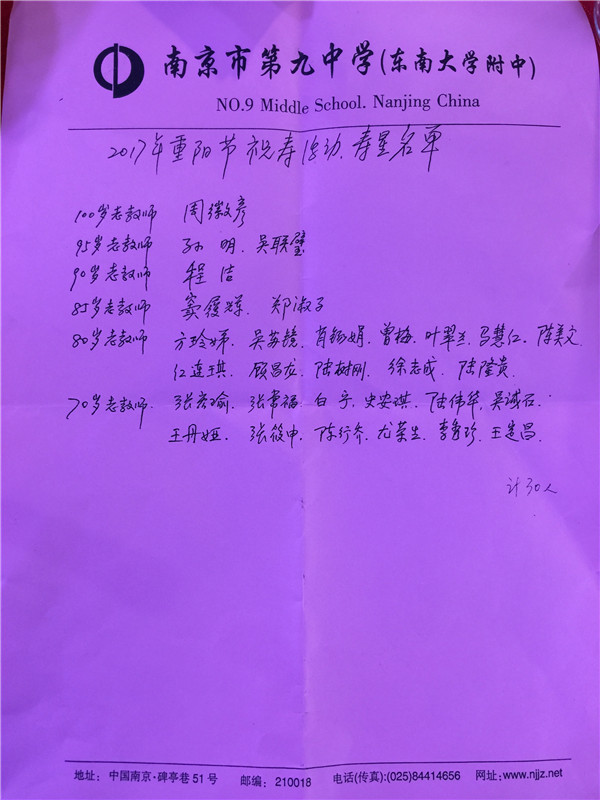 南京市第九中学(东南大学附中)
NO.9 Middle School. Nanjing China
2017年重阳节祝寿活动、寿星名单
100岁老教师 周徽彦
95岁老教师 孙明、吴联璧
90岁老教师 程洁
85岁老教师 窦履辉、郑淑子
80岁老教师 方玲娣、吴苏镜、肖钖娟、曾梅、叶翠兰、马慧仁、陈美文
红连琪、顾昌龙、陆树刚、徐志成、陆隆贵、
70岁老教师、张宏瑜、张常福、白宁、史安琪、陆伟华、吴诚石、
王丹娅、张筱中、陈行乔、尤荣生、李秀珍、王造昌、
计30人
地址：中国南京·碑亭巷51号 邮编：210018 电话(传真):(025)84414656 网址:www.njjz.net